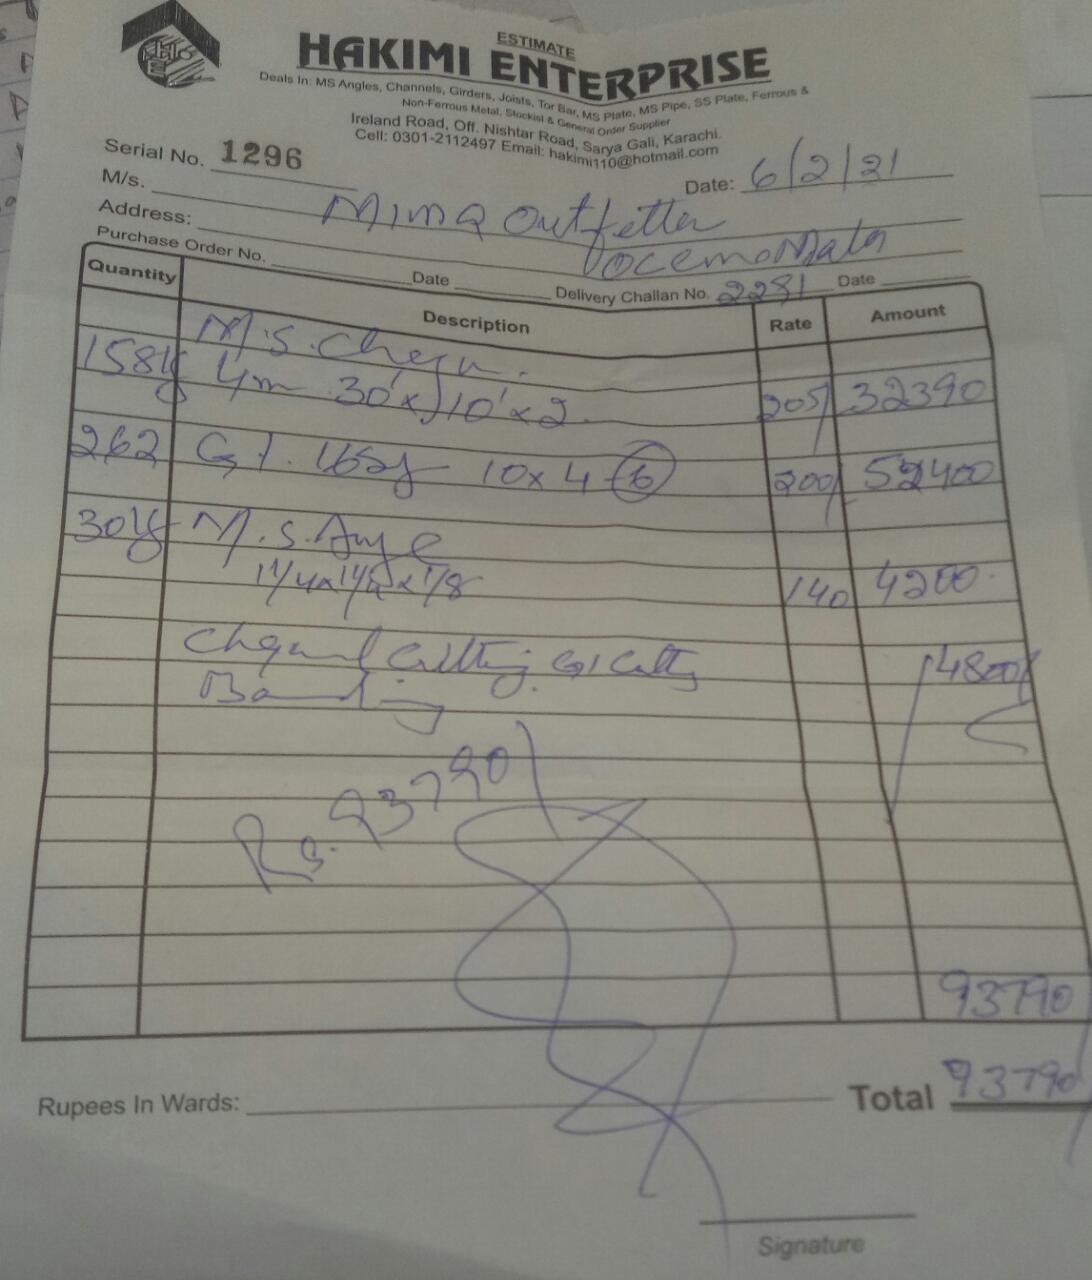 ESTIMATE
HAKIMI ENTERPRISE
Deals In: MS Angles, Channels, Girders, Joists, Tor Bar, MS Plate, MS Pipe, SS Plate, Ferrous &
Non-Ferrous Metal, Stockist & General Order Supplier
Ireland Road, Off. Nishtar Road, Sarya Gali, Karachi.
Cell: 0301-2112497 Email: hakimi110@hotmail.com
Serial No. 1296 Date: 6/2/21
M/s.
Address:
Purchase Order No. Date Delivery Challan No. 2281 Date
Quantity Description Rate Amount
M.S.
4m 30'x10'x2 205/ 32390
262 G.I. 10x4 6 200/ 52400
M.S.
1 1/4x 1/8 140 4200
Cutting
4800/
Rs. 93790/
93790
Rupees In Wards: Total 93790
Signature